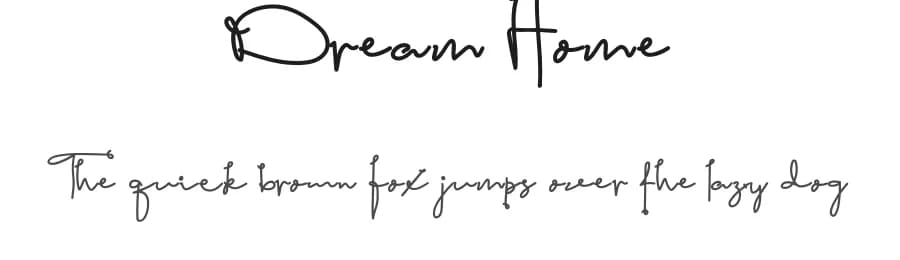 Dream Home
The quick brown fox jumps over the lazy dog